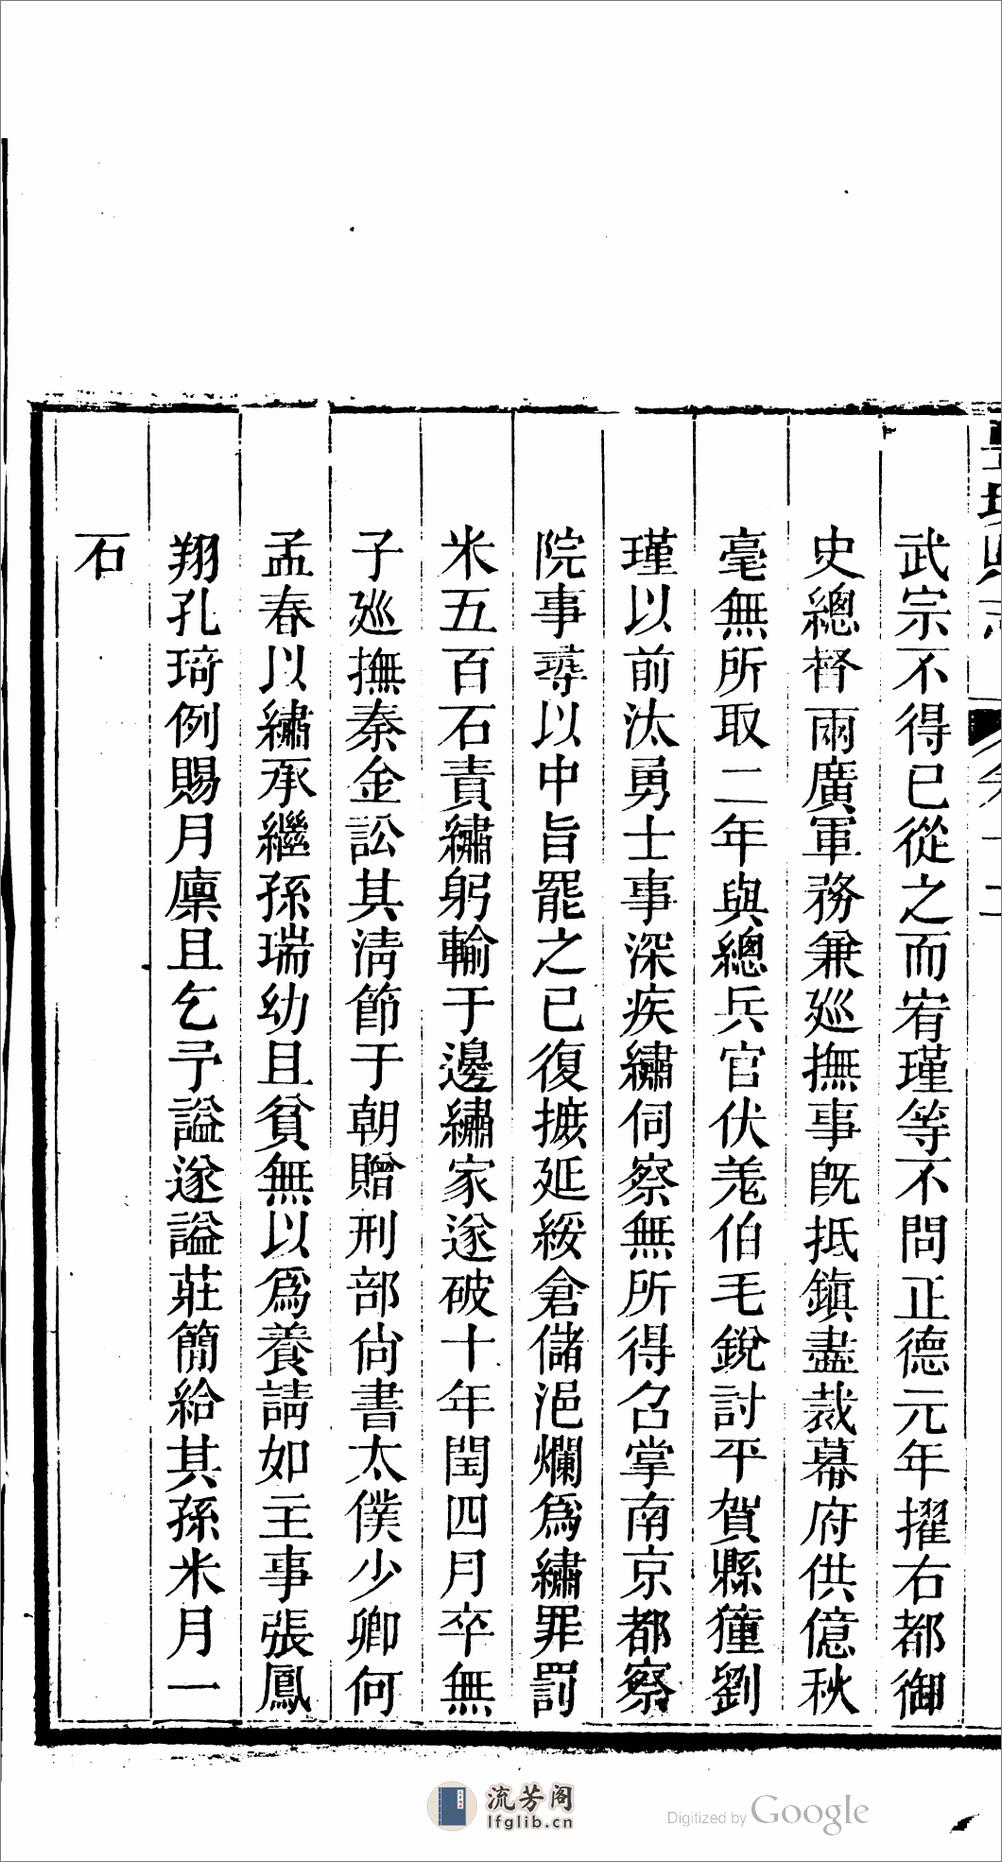 武宗不得已從之而宥瑾等不問正德元年擢右都御
史總督兩廣軍務兼廵撫事旣抵鎮盡裁幕府供億秋
毫無所取二年與總兵官伏羌伯毛銳討平賀縣獞劉
瑾以前汰勇士事深疾繡伺察無所得召掌南京都察
院事尋以中旨罷之已復摭延綏倉儲浥爛爲繡罪罰
米五百石責繡躬輸于邊繡家遂破十年閏四月卒無
子廵撫秦金訟其清節于朝贈刑部尚書太僕少卿何
孟春以繡承繼孫瑞幼且貧無以爲養請如主事張鳳
翔孔琦例賜月廩且乞予謚遂謚莊簡給其孫米月一
石
流芳阁
lfglib.cn
Digitized by Google